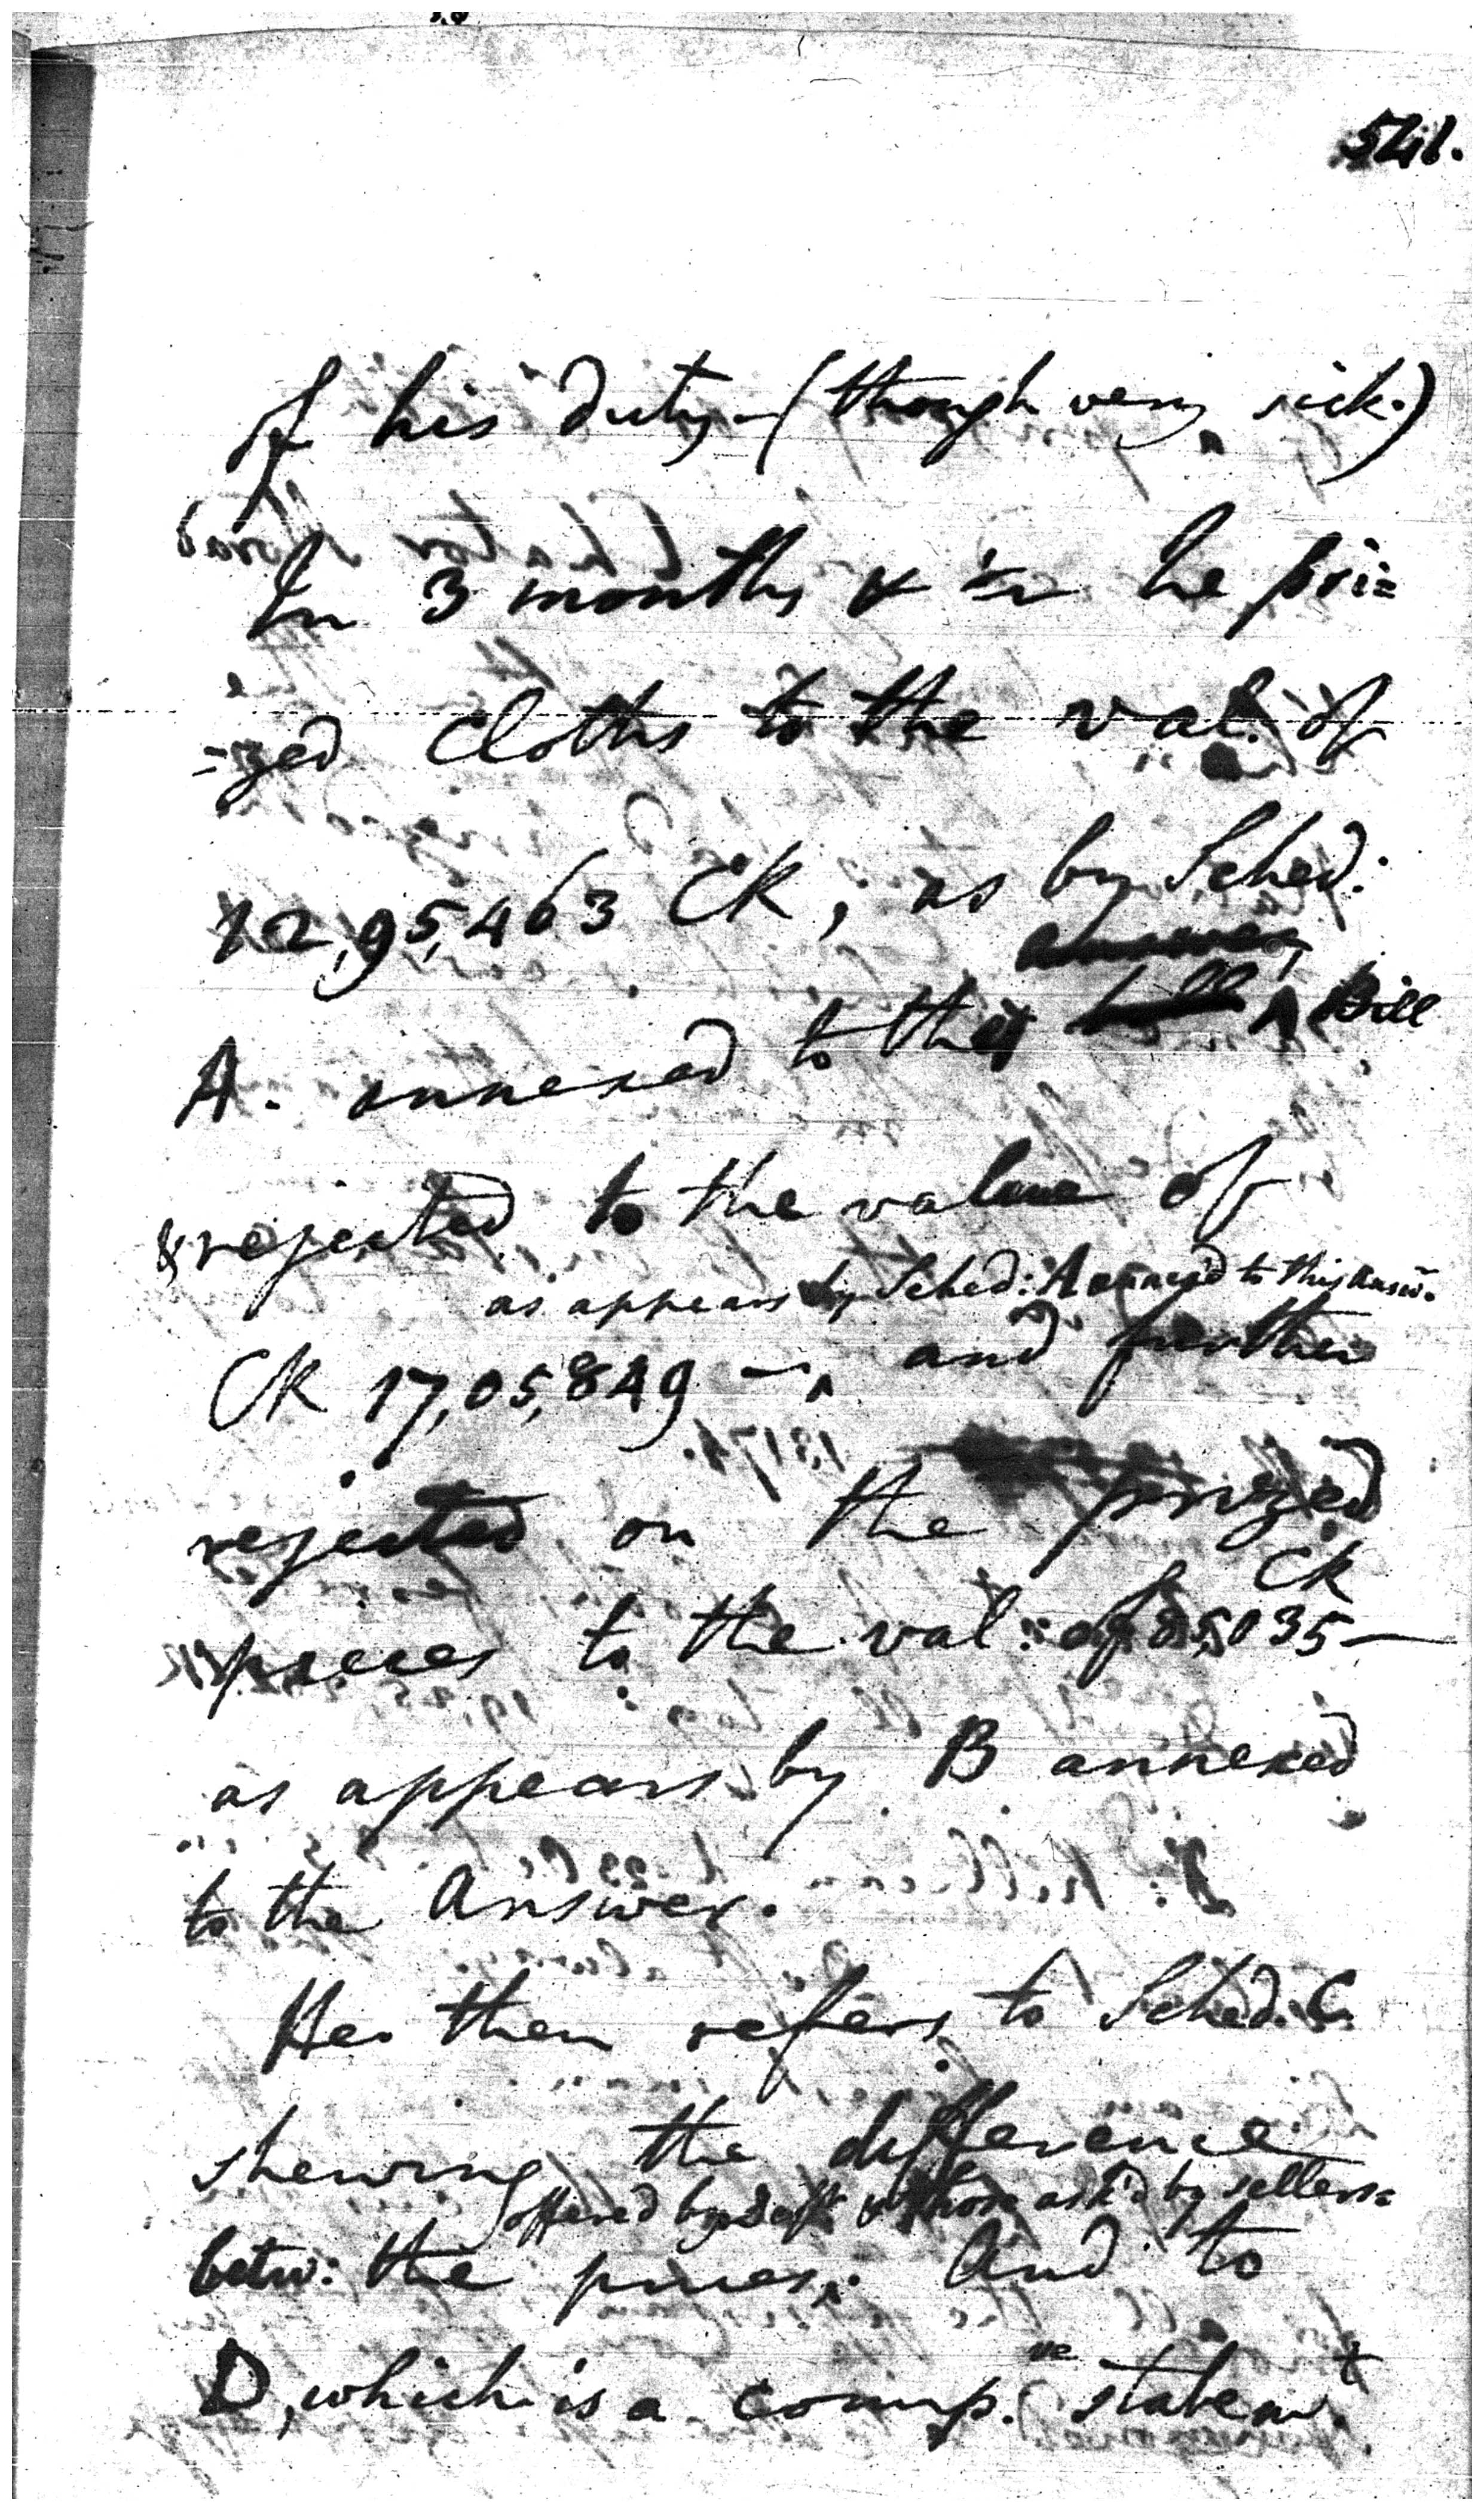 541.
of his duty - (though very sick.)
In 3 months & ½ he pri=
=zed Cloths to the val. of
12,95,463 CR, as by Sched:
answer
A. annexed to the bill Bill
& rejected to the value of
as appears by Sched: A annexed to this Answr.
CR 17,05,849 -, and further
rejected on the prized
pieces to the val: of 25,035 —
CR
as appears by B annexed
to the Answer.
He then refers to Sched. C.
shewing the difference
offered by Deft & those ask'd by sellers.
betw: the prices. And to
D, which is a comp.ve statemt.